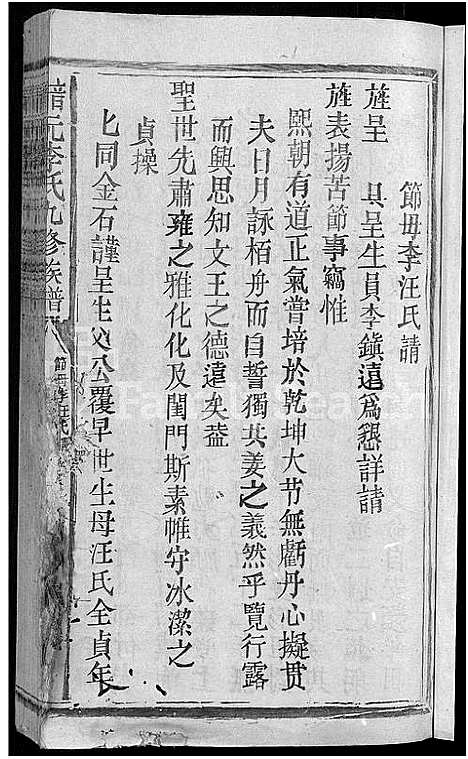 節母李汪氏請
旌呈　具呈生員李鎮遠爲懇詳請
旌表揚苦節事竊惟
熙朝有道正氣嘗培於乾坤大节無虧丹心擬貫
夫日月詠栢舟而自誓獨共姜之義然乎覽行露
而興思知文王之德遠矣葢
聖世先肅雍之雅化化及閨門斯素帷守冰潔之
貞操
匕同金石謹呈生父公覆早世生母汪氏全貞年
李氏九修族譜
節母李汪氏
FamilySearch